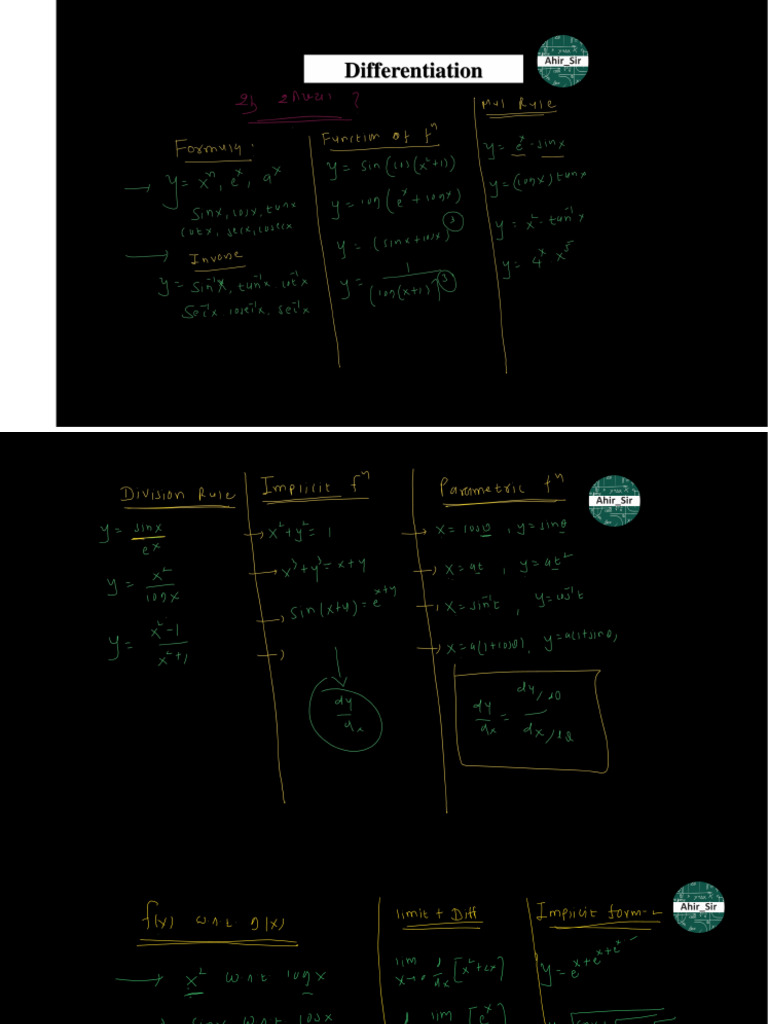 Differentiation
Ahir_Sir
Formula.
y = xⁿ, eˣ, aˣ
sinx, cosx, tanx
cotx, secx, cosecx
Inverse
y = sin⁻¹x, tan⁻¹x. cot⁻¹x
sec⁻¹x. cosec⁻¹x. sec⁻¹x
Function of fⁿ
y = sin(cos(x²+1))
y = log(eˣ + logx)
y = (sinx+cosx)³
y = 1/(log(x+1))³
Mul Rule
y = eˣ · sinx
y = (logx) tanx
y = x² · tan⁻¹x
y = 4ˣ x⁵
Ahir_Sir
Division Rule
y = sinx/eˣ
y = x²/logx
y = x²-1/x²+1
Implicit fⁿ
→ x² + y² = 1
→ x³ + y³ = x + y
→ sin(x+y) = eˣ⁺ʸ
→
dy/dx
Parametric fⁿ
→ x = cosθ, y = sinθ
→ x = at, y = at²
→ x = sin⁻¹t, y = cos⁻¹t
→ x = a(1+cosθ), y = a(1+sinθ)
dy/dx = dy/dθ / dx/dθ
Ahir_Sir
f(x) w r t. g(x)
→ x² w r t logx
limit + Diff
lim x→0 d/dx [x²+2x]
Implicit form-2